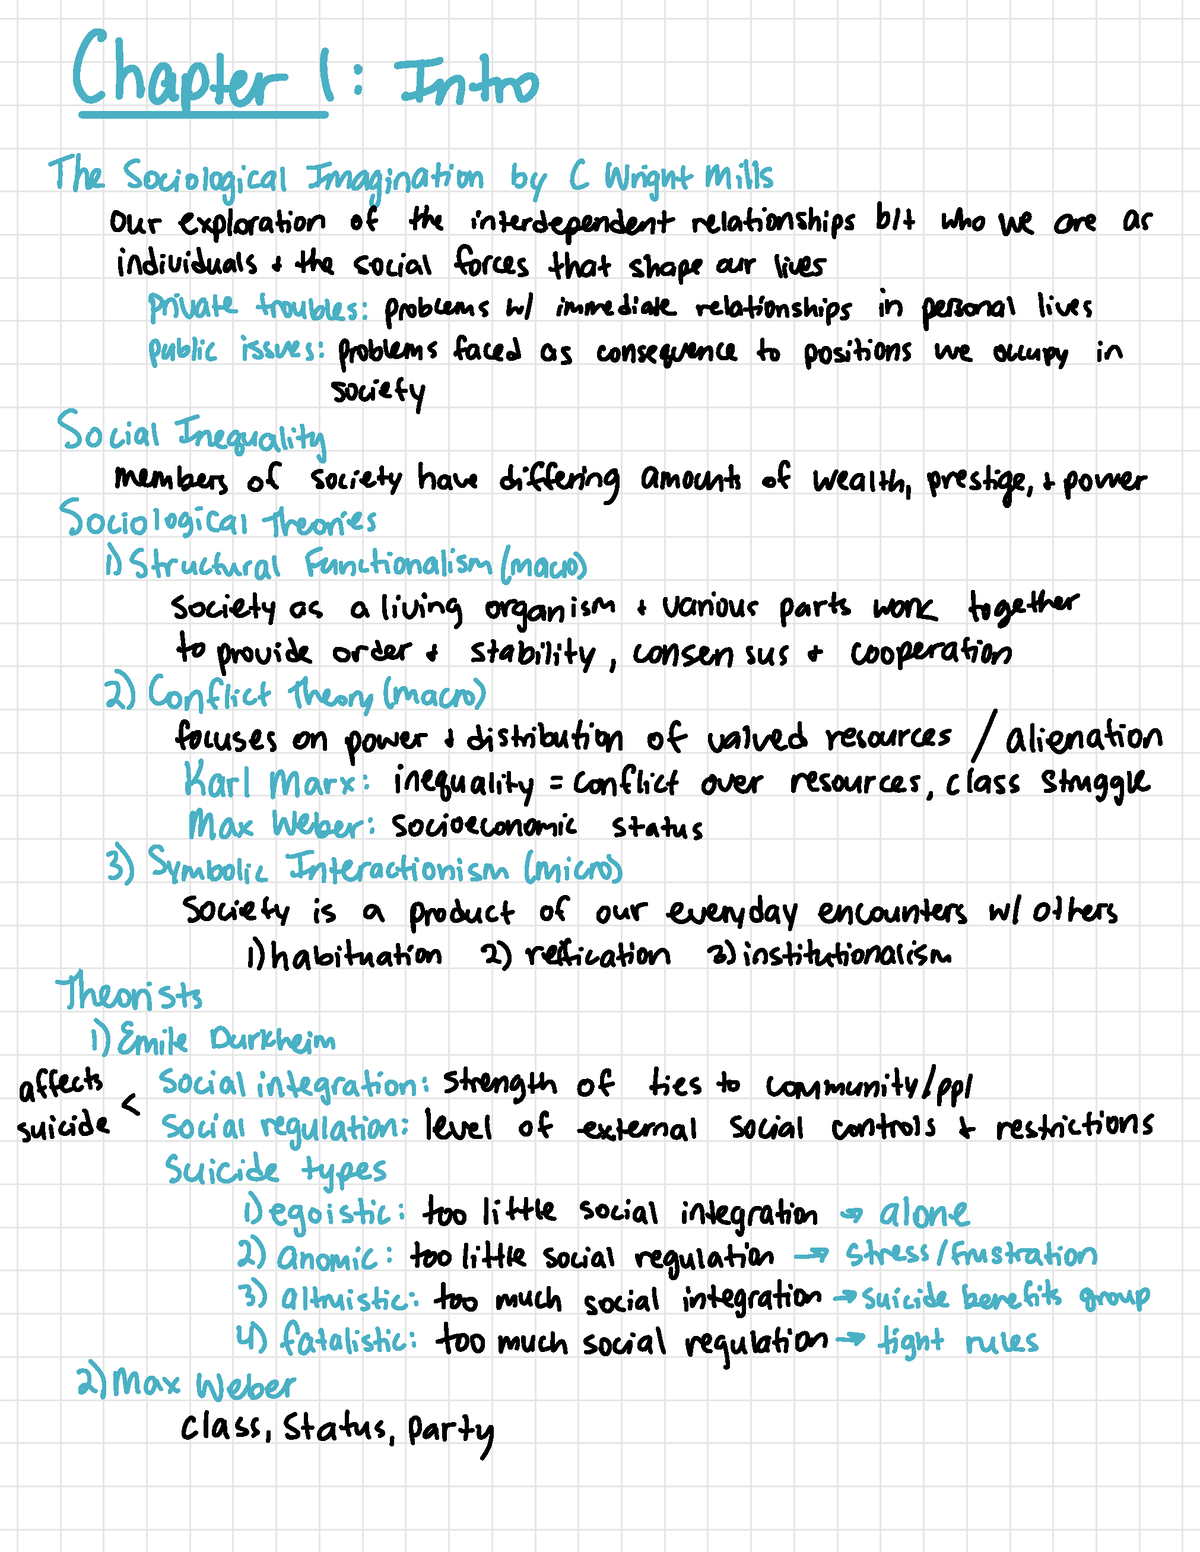 Chapter 1: Intro
The Sociological Imagination by C Wright Mills
Our exploration of the interdependent relationships b/t who we are as
individuals + the social forces that shape our lives
private troubles: problems w/ immediate relationships in personal lives
public issues: problems faced as consequence to positions we occupy in
society
Social Inequality
members of society have differing amounts of wealth, prestige, + power
Sociological Theories
1) Structural Functionalism (macro)
society as a living organism + various parts work together
to provide order + stability, consensus + cooperation
2) Conflict Theory (macro)
focuses on power + distribution of valved resources / alienation
Karl Marx: inequality = conflict over resources, class struggle
Max Weber: socioeconomic status
3) Symbolic Interactionism (micro)
Society is a product of our everyday encounters w/ others
1) habituation 2) reification 3) institutionalism
Theorists
1) Emile Durkheim
affects
suicide <
Social integration: strength of ties to community/ppl
Social regulation: level of external social controls + restrictions
Suicide types
1) egoistic: too little social integration → alone
2) anomic: too little social regulation → stress/frustration
3) altruistic: too much social integration → suicide benefits group
4) fatalistic: too much social regulation → tight rules
2) Max Weber
class, status, party